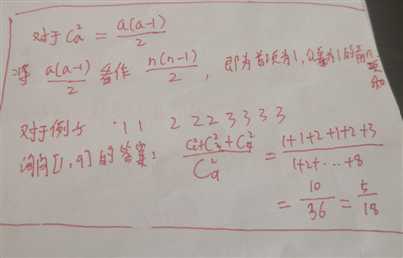 对于 C_a^2 = a(a-1)/2
将 a(a-1)/2 看作 n(n-1)/2, 即为首项为1,公差为1的前n项和
对于例子 1 1 2 2 2 3 3 3 3
询问[1,9]的答案: (C_2^2+C_3^2+C_4^2)/C_9^2 = (1+1+2+1+2+3)/(1+2+...+8)
= 10/36 = 5/18